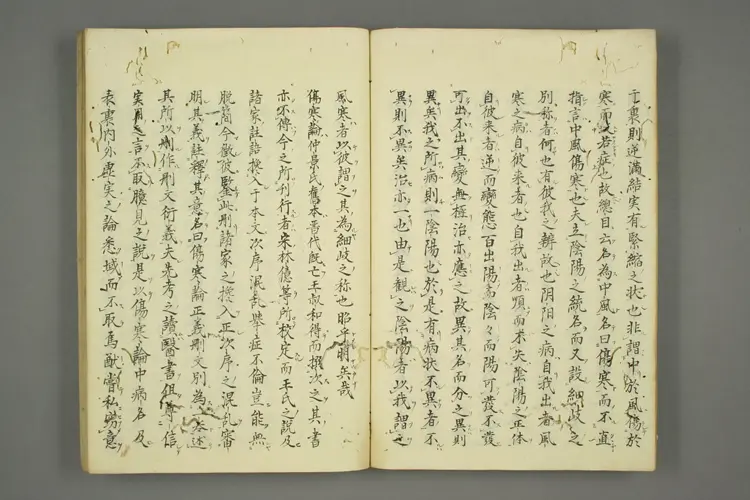 于裏則逆滿結実有緊縮之状也非謂中於風傷於
寒而又若症也故總目云名為中風名曰傷寒而不直
指言中風傷寒也夫立陰陽之統名而又設細岐之
別称者何也有彼我之辨故也阴阳之病自我出者風
寒之病自彼来者也自我出者順而不失陰陽之正体
自彼来者逆而變態百出陽為陰々而陽可發不發
可出不出其變無極治亦應之故異其名而分之異則
異矣我之所病則一陰陽也於是有病状不異者不
異則不異矣治亦一也由是觀之陰陽者以我謂之
風寒者以彼謂之其為細岐之称也昭乎明矣哉
傷寒論仲景氏舊本晋代既亡王叔和得而撰次之其書
亦不傳今之所刊行者宋林億等所校定而王氏之說及
諸家註語攙入于本文次序混乱舉症不倫豈能無
脱簡今徵彼鑒此刪諸家之攙入正次序之混乱審
明其義註釋其意名曰傷寒論正義刪文別為一卷述
其所以刪作刪文衍義夫先考之讀醫書俎尊信
実用之言不取臆見之說是以傷寒論中病名及
表裏内外虚実之論悉域而不取焉猷嘗私勞意